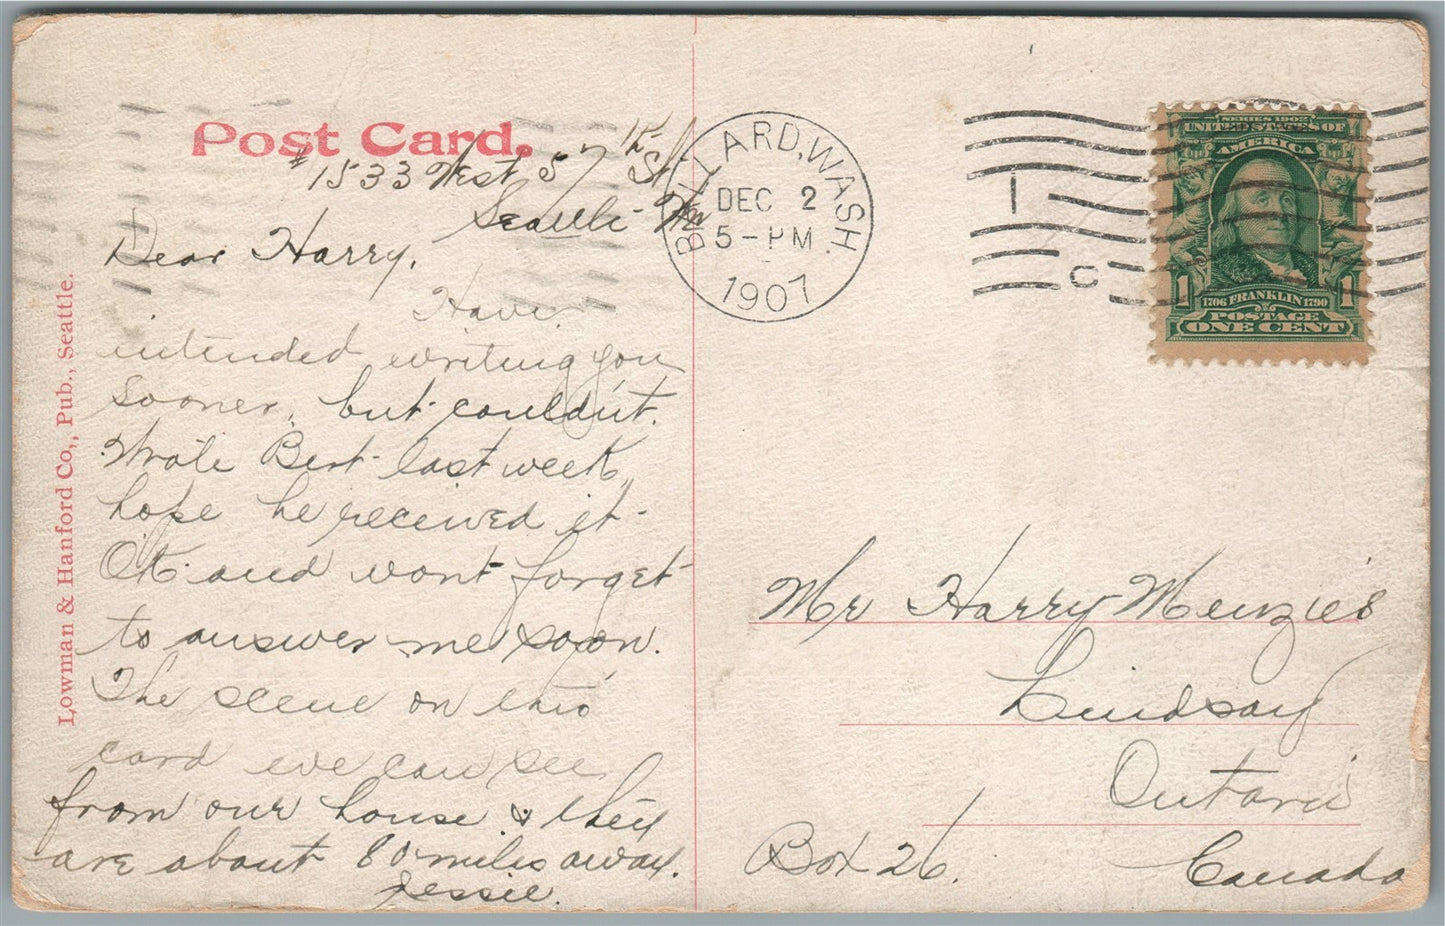 Post Card.
#1533 West 57th St
Seattle Wn
Dear Harry,
Have
intended writing you
sooner, but couldn't.
Wrote Bert last week,
hope he received it
O.K. and wont forget
to answer me soon.
The scene on this
card we can see
from our house & they
are about 80 miles away.
Jessie.
Lowman & Hanford Co., Pub., Seattle.
BALLARD, WASH.
DEC 2
5-PM
1907
1
C
SERIES 1902
UNITED STATES OF
AMERICA
1706 FRANKLIN 1790
1 1
POSTAGE
ONE CENT
Mr Harry Menzies
Lindsay
Ontario
Box 26.
Canada